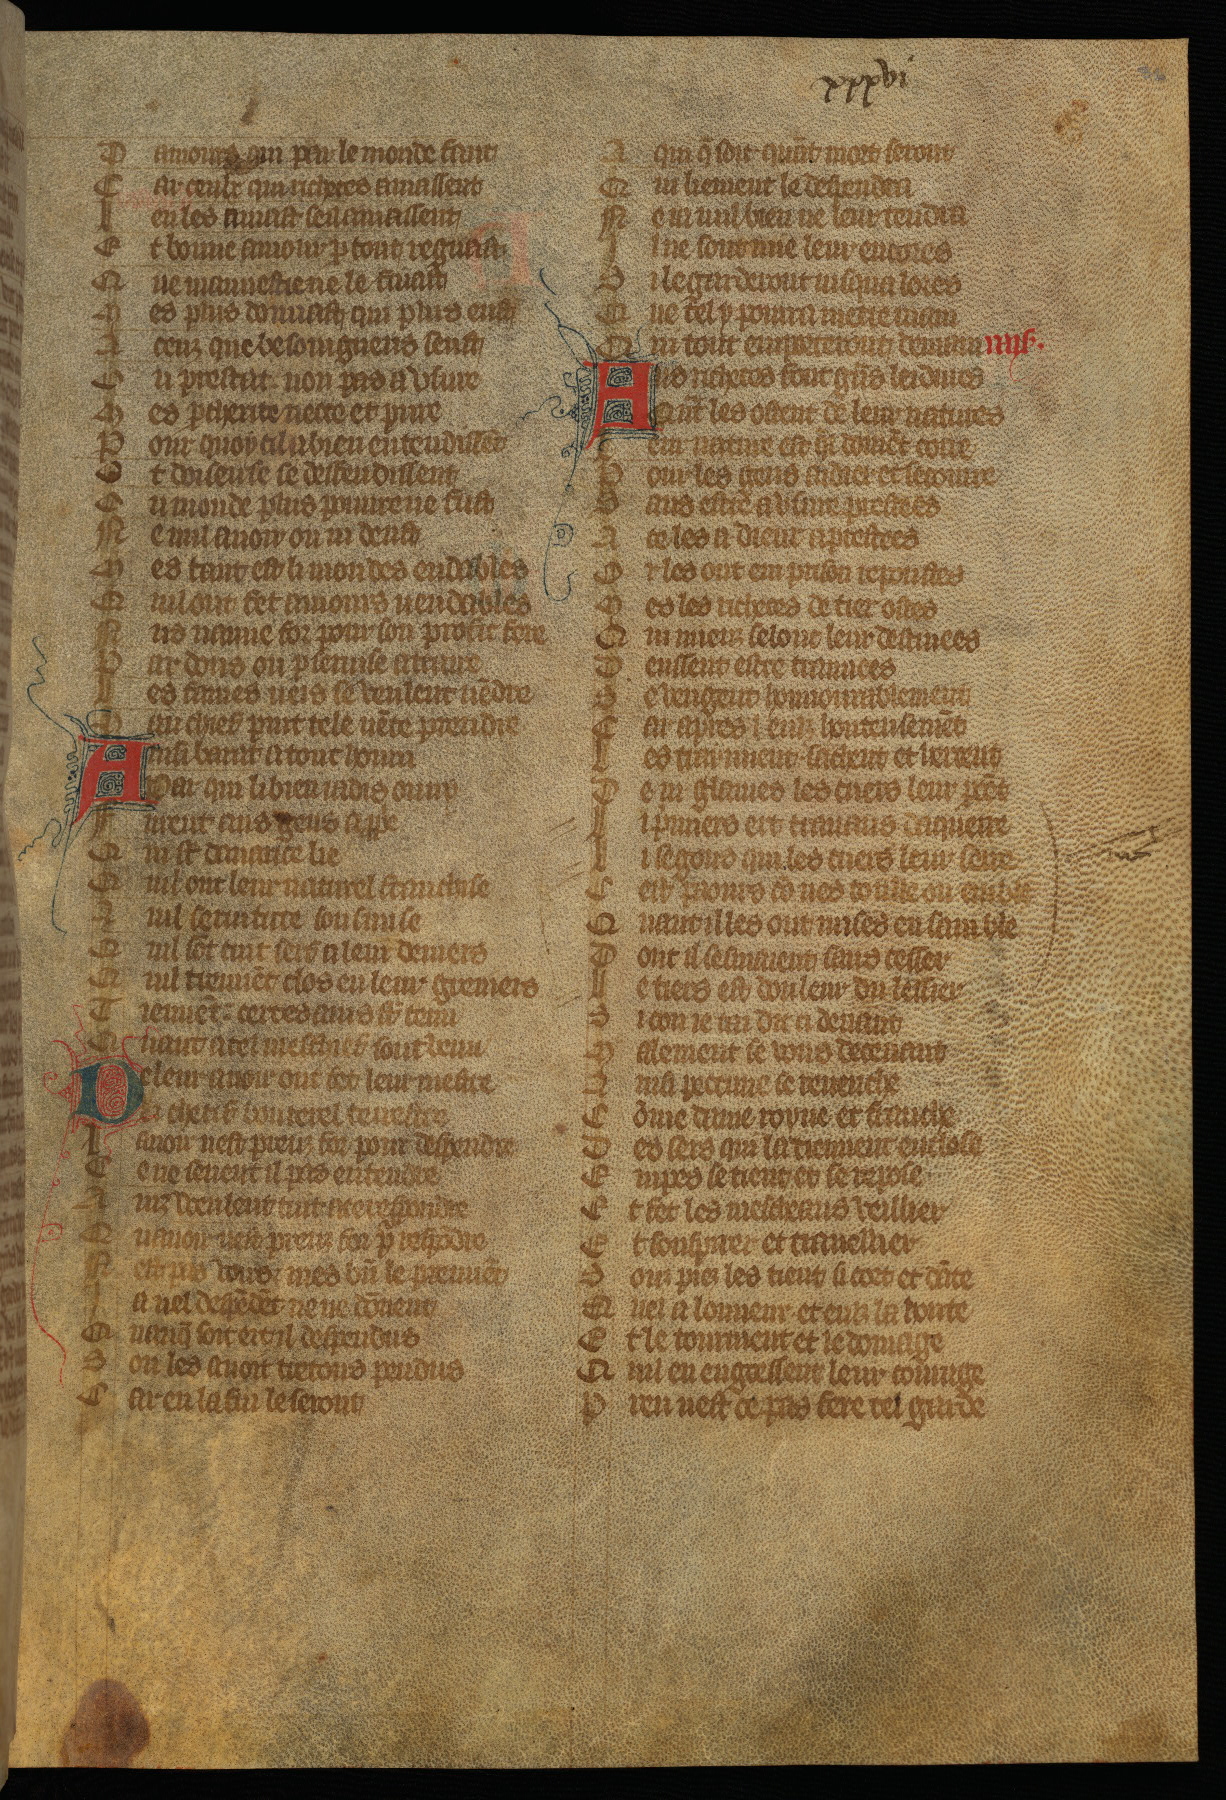 xxxvi
D amours qui par le monde faut
C ar ceulz qui richeces amassent
S en les amast seil amassent
E t bonne amour p tout regnast
Q ue mauuestie ne le fmast
M es plus donnast qui plus eust
A ceuz que besoingneus seust
O u prestast non pas a vsure
M es p charite nete et pure
P our quoy cil a bien entendissēt
E t doiseuse se deffendissent
O u monde plus poure ne fust
N e nul auoir on ni deust
M es tant est li mondes endables
Q uil ont fet amours uendables
N us naime for pour son profit fere
P ar dons ou p seruise atraire
N es fames ueis se veulent uēdre
M au chief puist tele uēte prendre
A insi barat a tout honni
P ar qui li bien iadis onny
F urent aus gens appe
Q ui st dauarice lie
Q uil ont leur naturel franchise
A uil seruitute sousmise
Q uil sōt tuit serf a leur deniers
Q uil tiennēt clos en leur greniers
T iennēt certes ains st tenu
Q uant a tel meschief sont venu
D e leur auoir ont fet leur mestre
L i chetif bouterel terrestre
L auoir nest preuz for pour despendre
C e ne seuent il pas entendre
A inz veulent tuit a ce respondre
Q uauoir nest preuz for p respōdre
N est pas voirs mes bn̄ le prennēt
J a nel despēdēt ne ne dōnent
Q uanq̄ soit ert il despendus
E t on les auoit tretous pendus
C ar en la fin le seront
A qui q̄ soit quāt mort seront
Q ui liement le despendra
N e ia nul bien ne leur rendra
J l ne sont mie leur encores
S i le garderont iusqua lores
Q ue tel y pourra metre main
Q ui tout emportera demain nusf.
A us richeces font gñs leidures
Q uāt les ostent de leur natures
L eur nature est q̄l doiuēt corre
P our les gens aidier et secourre
S ans estre a vsure prestees
A ce les a dieux aprestees
O r les ont en prison repostes
M es les richeces de tiex ostes
Q ui mieuz selonc leur destinees
D eussent estre trainees
S e vengent honnourablement
C ar apres l eus honteusemēt
L es trainnent sachent et herrent
D e iii glaiues les cuers leur pcēt
L i p̄miers est trauaus daquerre
L i segons qui les cuers leur serre
C est paours cō nes toille ou emble
Q uant il les ont mises en samble
D ont il sesmaient sans cesser
L e tiers est douleur du lessier
S i con ie tai dit ci deuant
M alement se vont deceuant
A insi pecune se reuenche
C ōme dame royne et franche
D es sers qui la tiennent enclose
E mpes se tient et se repose
E t fet les mescheans veillier
E t souspirer et trauellier
S ouz piez les tient si cort et dōte
Q uel a lonneur et eus la honte
E t le tourment et le domage
Q uil en engoessent leur courage
P reu nest ce pas fere tel garde